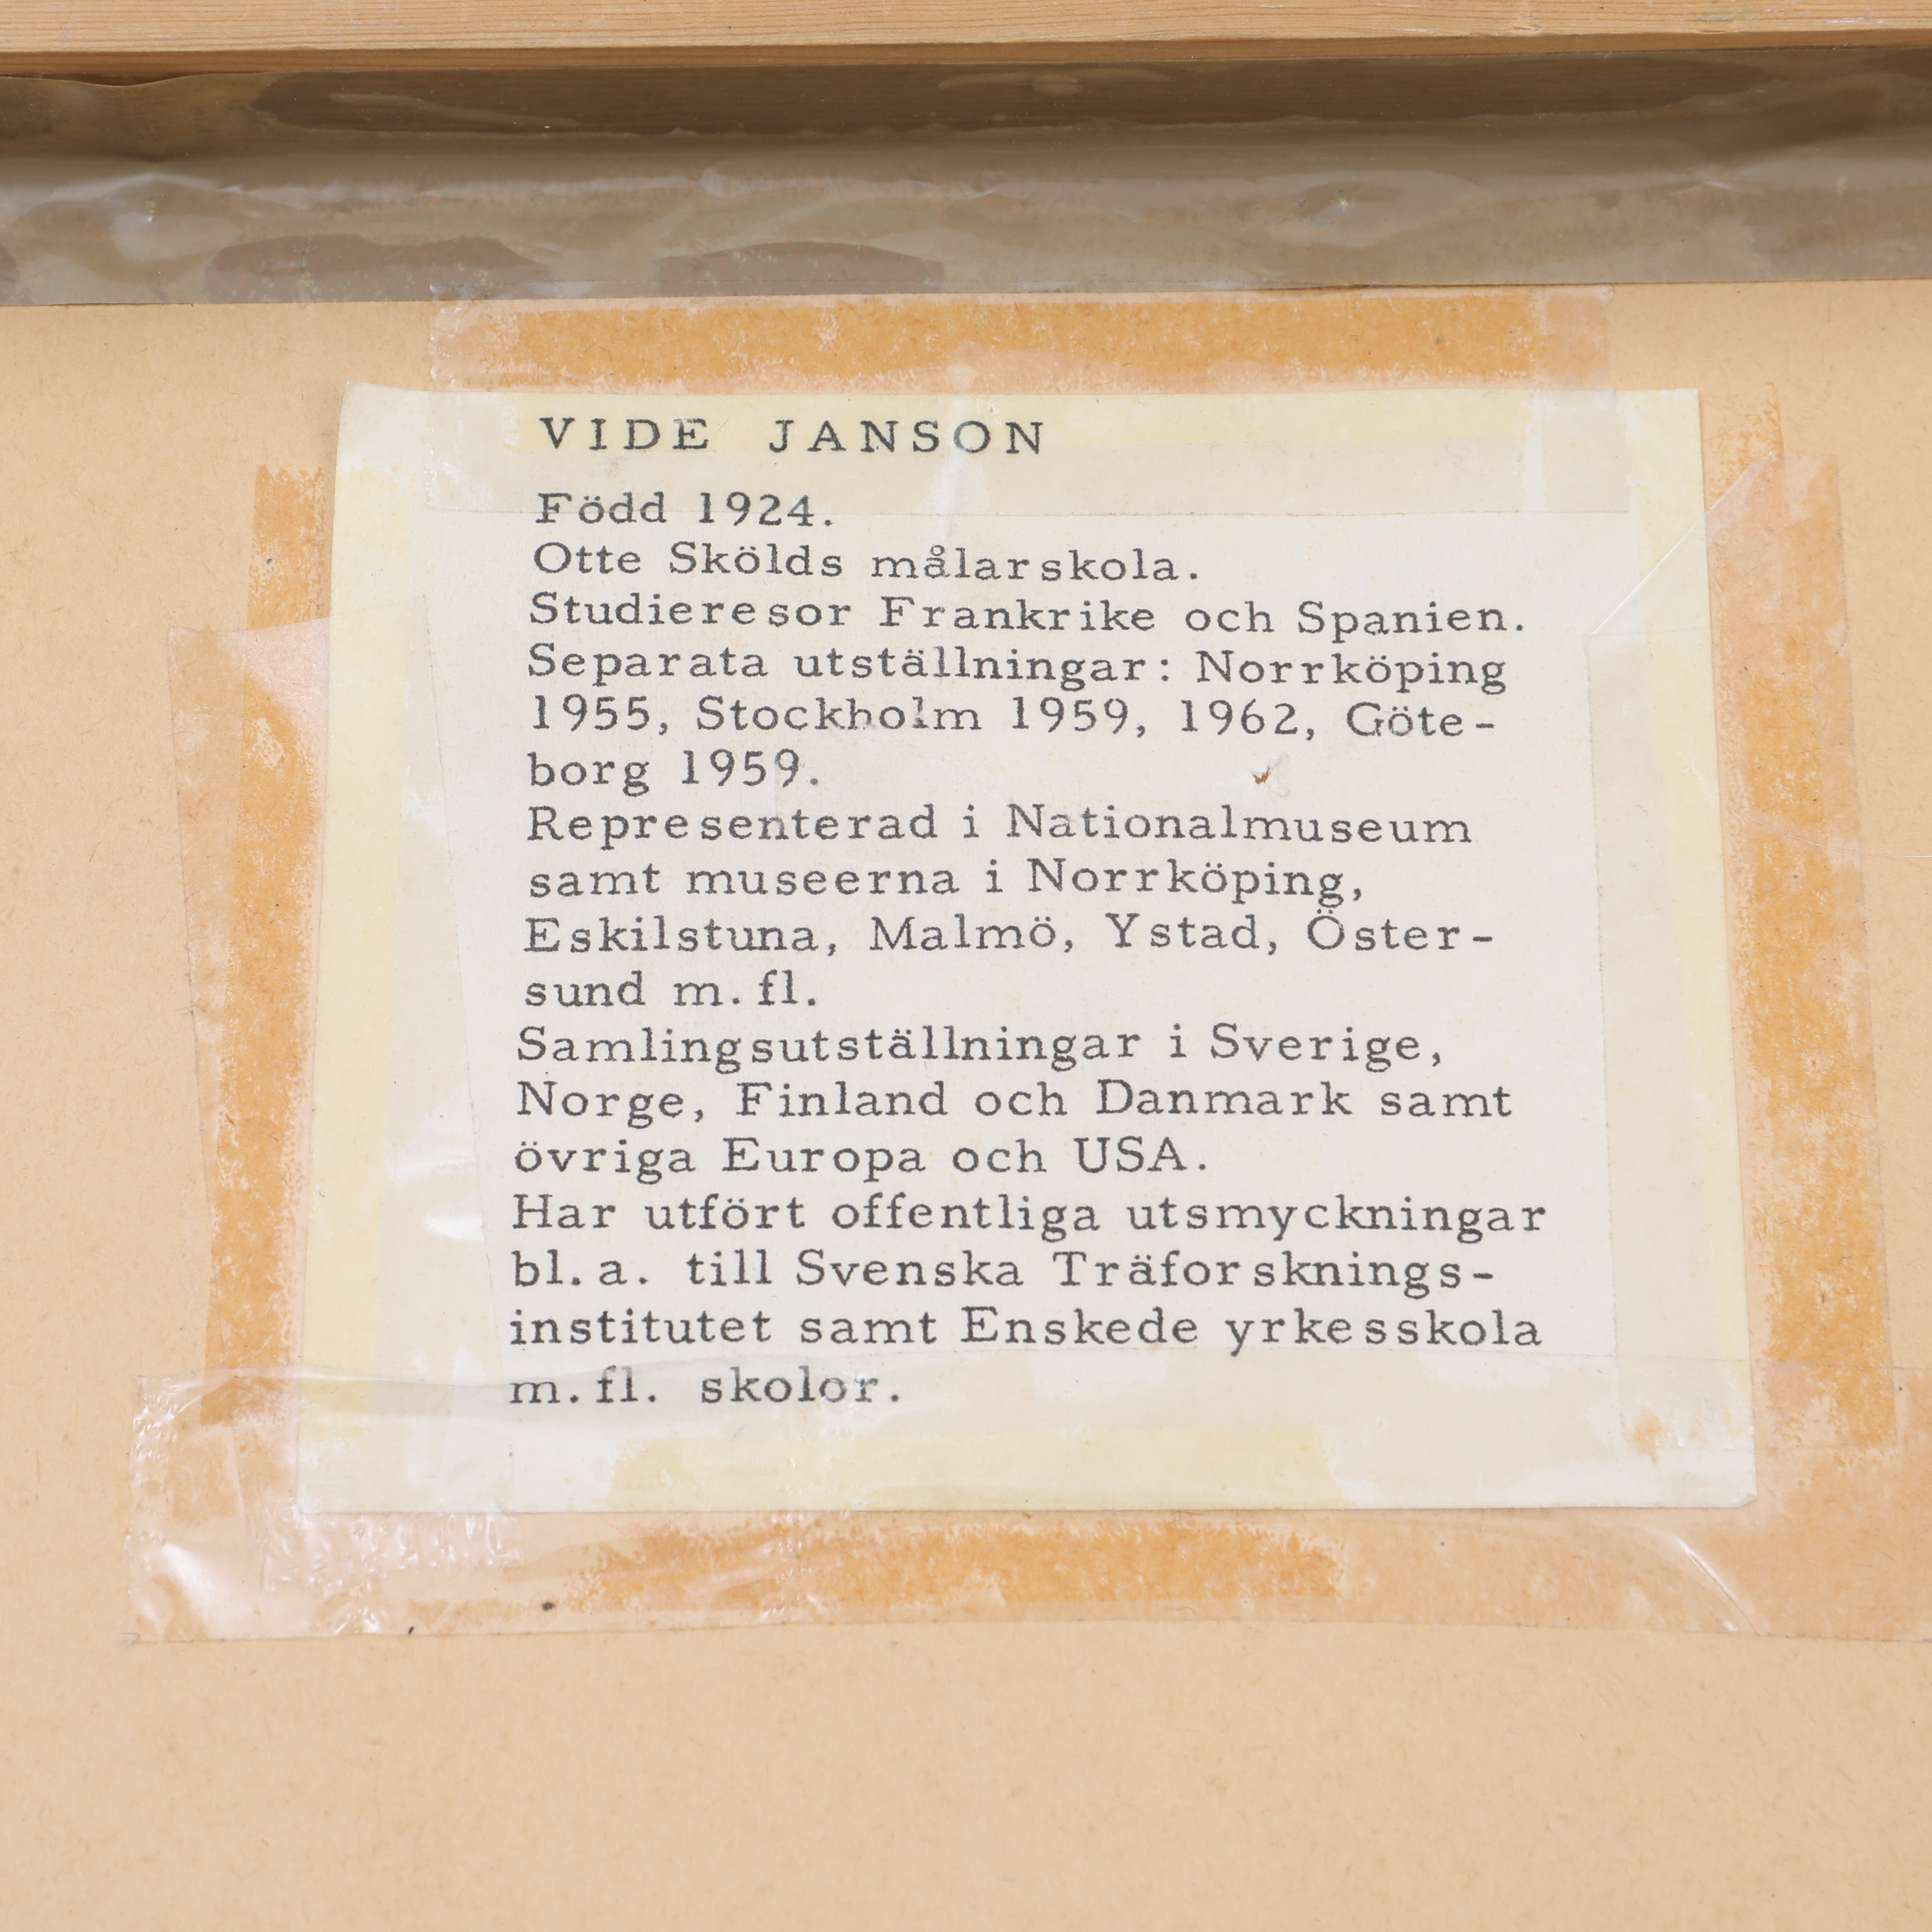 VIDE JANSON
Född 1924.
Otte Skölds målarskola.
Studieresor Frankrike och Spanien.
Separata utställningar: Norrköping
1955, Stockholm 1959, 1962, Göte-
borg 1959.
Representerad i Nationalmuseum
samt museerna i Norrköping,
Eskilstuna, Malmö, Ystad, Öster-
sund m.fl.
Samlingsutställningar i Sverige,
Norge, Finland och Danmark samt
övriga Europa och USA.
Har utfört offentliga utsmyckningar
bl.a. till Svenska Träforsknings-
institutet samt Enskede yrkesskola
m.fl. skolor.